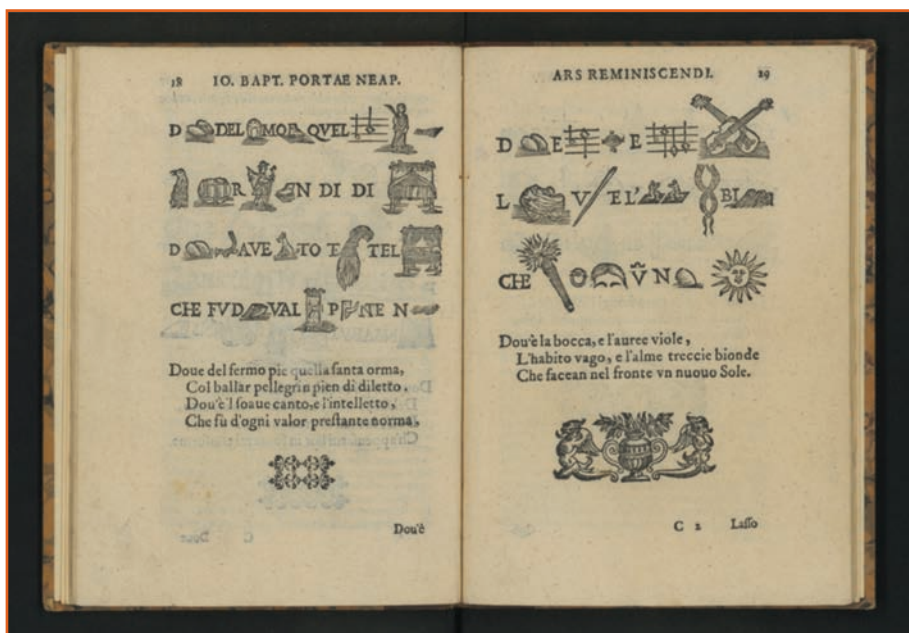 18 IO. BAPT. PORTAE NEAP.
D DEL MO QVEL
R N DI DI
D AVE TO E TEL
CHE FVD VAL P NTE N
Doue del fermo pie quella ſanta orma,
Col ballar pellegrin pien di diletto,
Dou'è'l ſoaue canto, e l'intelletto,
Che fù d'ogni valor preſtante norma,
Dou'è
ARS REMINISCENDI. 29
D E E
L V EL' BI
CHE O VN
Dou'è la bocca, e l'auree viole,
L'habito vago, e l'alme treccie bionde
Che facean nel fronte vn nuouo Sole.
C 2 Laſſo